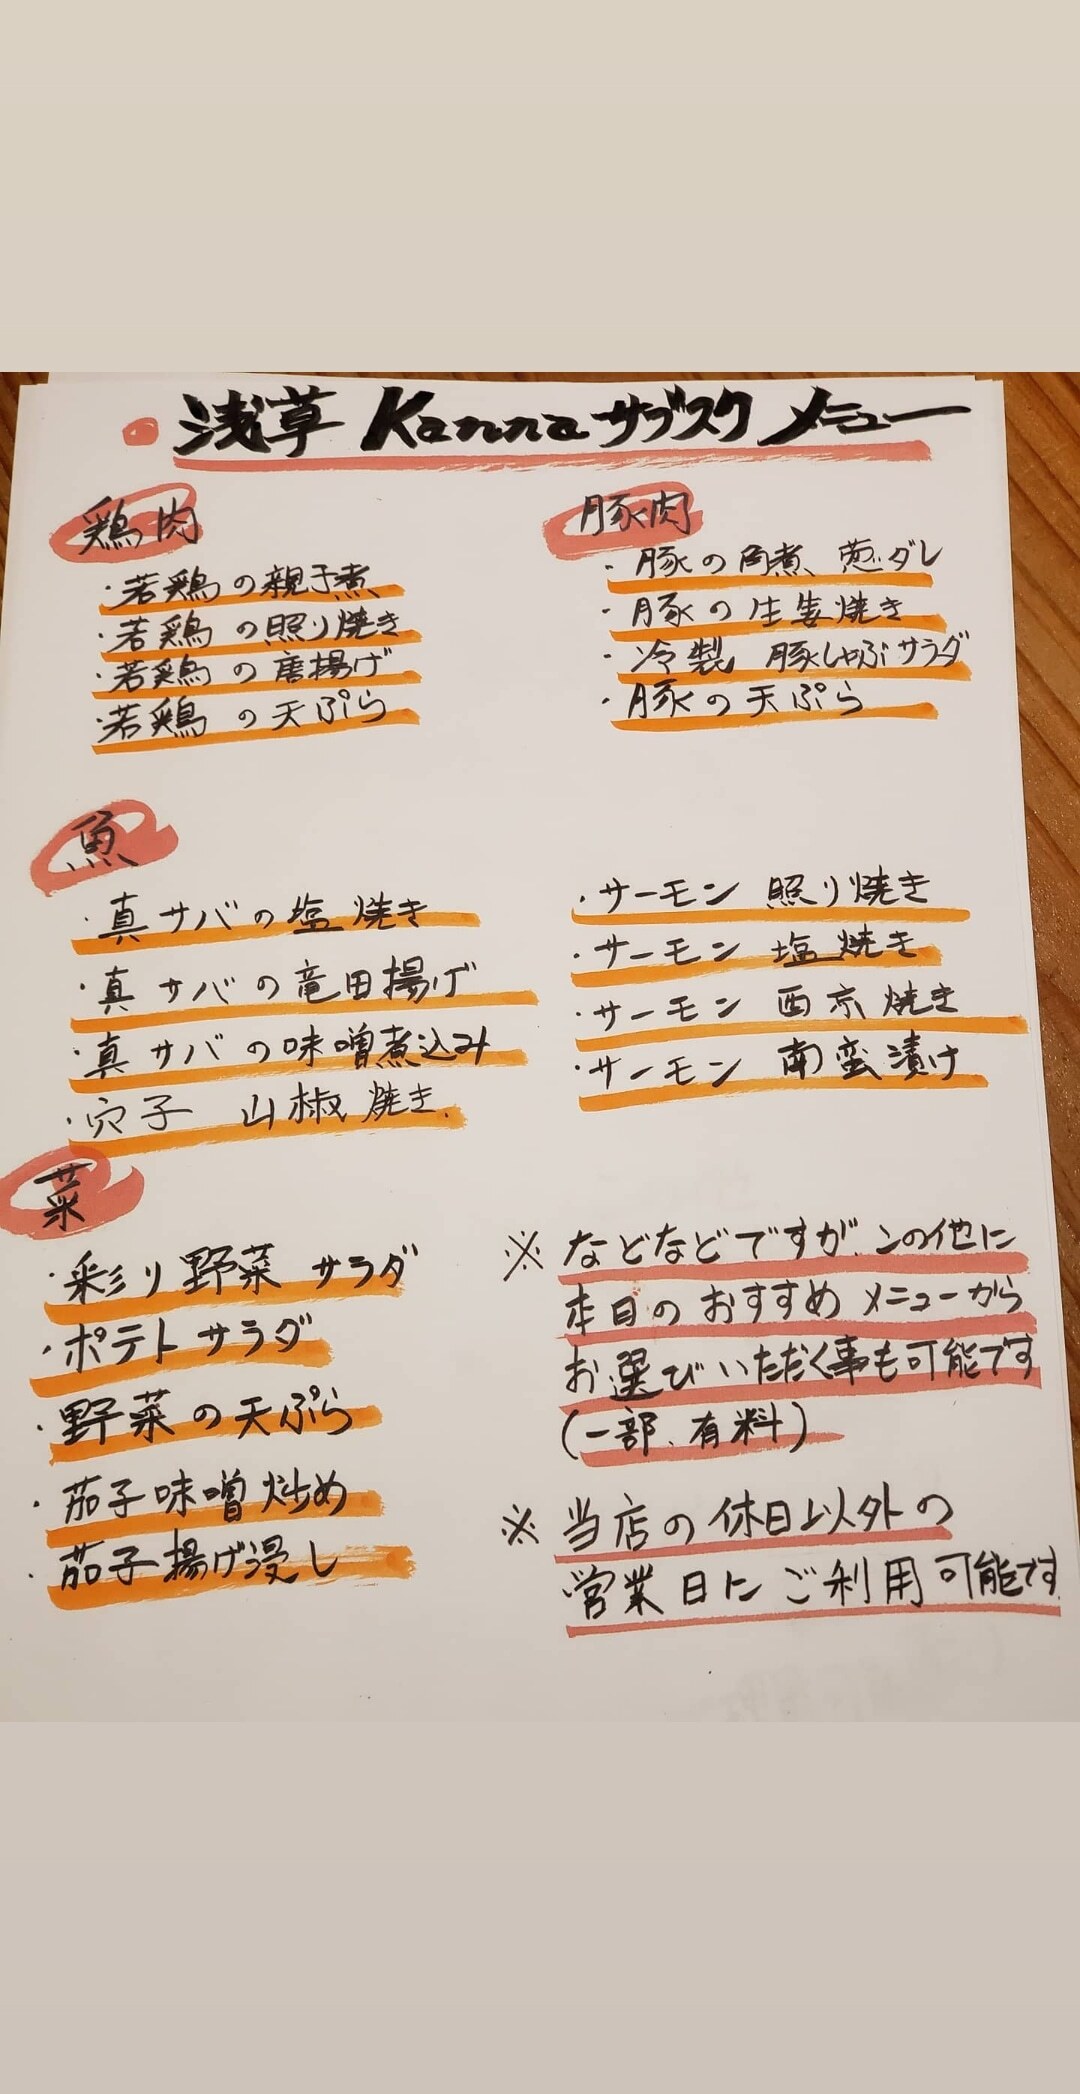 浅草 Kanna サブスク メニュー
鶏肉
・若鶏の親子煮
・若鶏の照り焼き
・若鶏の唐揚げ
・若鶏の天ぷら
豚肉
・豚の角煮 葱ダレ
・豚の生姜焼き
・冷製 豚しゃぶサラダ
・豚の天ぷら
魚
・真サバの塩焼き
・真サバの竜田揚げ
・真サバの味噌煮込み
・穴子 山椒焼き
・サーモン 照り焼き
・サーモン 塩焼き
・サーモン 西京焼き
・サーモン 南蛮漬け
菜
・彩り野菜 サラダ
・ポテトサラダ
・野菜の天ぷら
・茄子味噌炒め
・茄子揚げ浸し
※などなどですが、この他に
本日のおすすめメニューから
お選びいただく事も可能です
(一部、有料)
※当店の休日以外の
営業日にご利用可能です